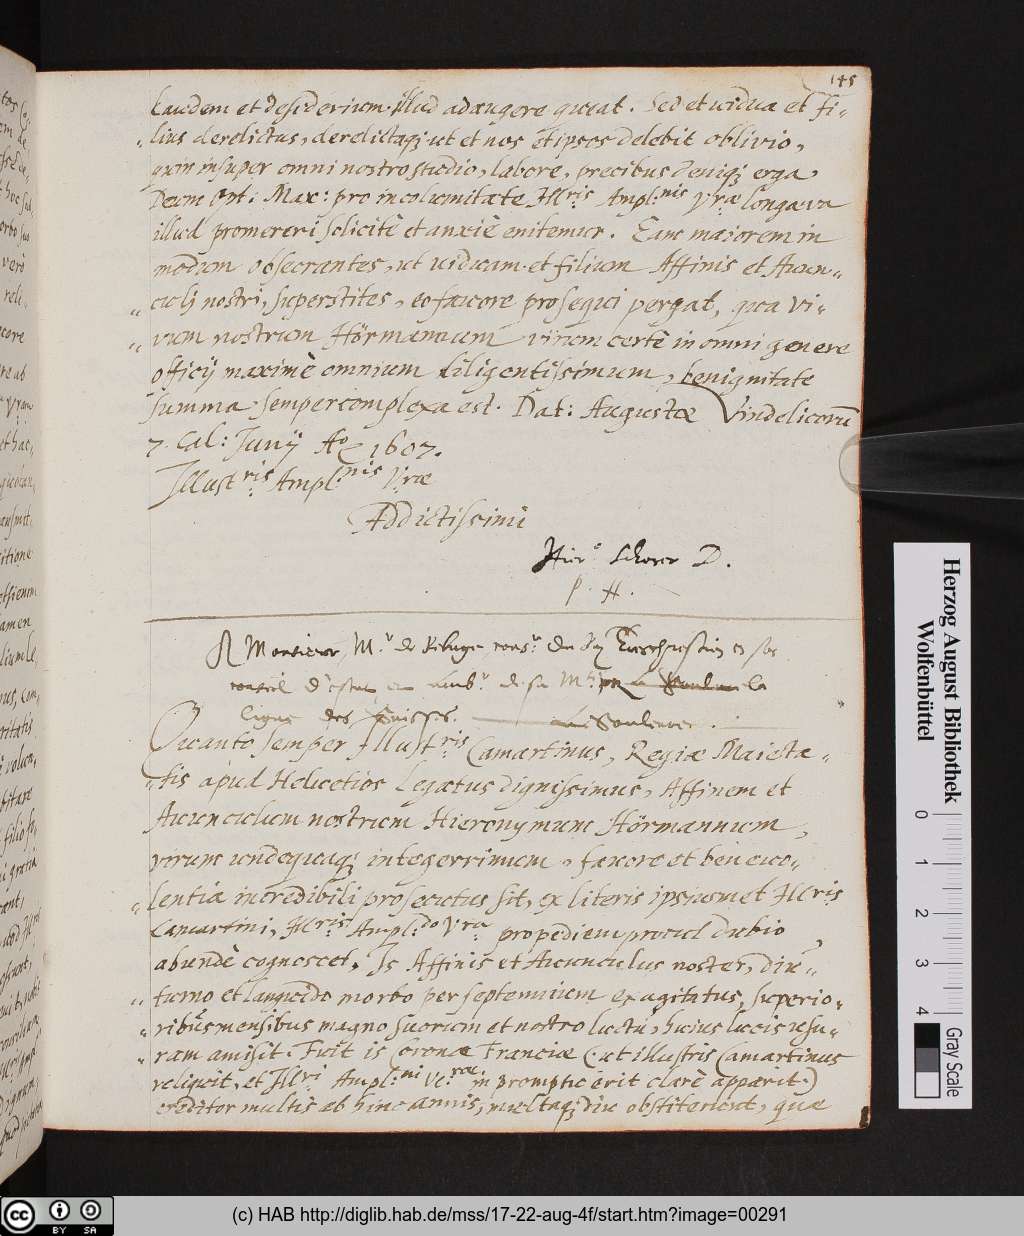 145
laudem et desiderium illud adaugere queat. Sed et uidua et fi„
„lius derelictus, derelictaq; ut et nos ipsos delebit oblivio,
quin insuper omni nostro studio, labore, precibus deniq; erga
Deum Opt: Max: pro incolumitate Ill:ris Ampl:nis Vræ longæva
illud promereri solicitè et anxiè enitemur. Eam maiorem in
modum obsecrantes, ut uiduam et filium Affinis et Auun„
„culj nostri, superstites, eo fauore prosequi pergat, qua Vi„
„vum nostrum Hörmannum virum certè in omni genere
officij maximè omnium diligentissimum, benignitate
summa semper complexa est. Dat: Augustæ Vindelicorū
7. Cal: Junij Ao 1607.
Illust:ris Ampl:nis Vræ
Addictissimi
Hier: Schorer D.
P. H.
A Monsieur, Mr. de Refuge, cons:r du Roy et ses
conseil d'estat et Amb:r de sa M:té la
ligue des Suisses.
Quanto semper Illust:ris Camartinus, Regiæ Maiesta„
„tis apud Helvetios Legatus dignissimus, Affinem et
Auunculum nostrum Hieronymum Hörmannum,
virum undequaq; integerrimum, fauore et beneuo„
„lentia incredibili prosecutus sit, ex literis ipsiusmet Ill:ris
Camartini, Ill:ris Ampl:do Vra propediem procul dubio
abundè cognoscet. Is Affinis et Auunculus noster, diu„
„turno et languido morbo per septennium exagitatus, superio„
„ribus mensibus magno suorum et nostro luctu, huius lucis usu„
„ram amisit. Fuit is Coronæ Franciæ (ut illustris Camartinus
reliquit, et Ill:ri Ampl:ni Vræ in promptu erit clarè apparit.)
creditor multis ab hinc annis, multaq; diu obstiterunt, quæ
Herzog August Bibliothek
Wolfenbüttel
0 1 2 3 4
Gray Scale
cc BY SA
(c) HAB http://diglib.hab.de/mss/17-22-aug-4f/start.htm?image=00291